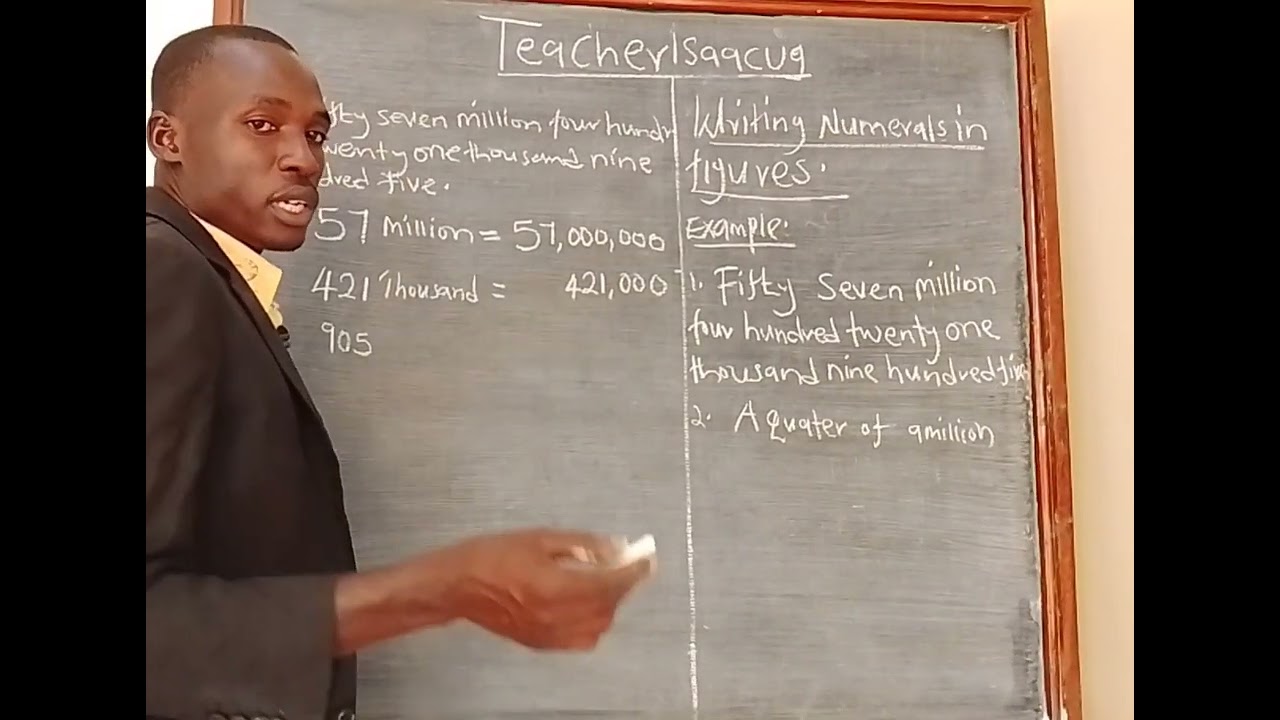 TeacherIsaacug
fty seven million four hundr
wenty one thousand nine
dred five.
57 Million = 57,000,000
421 Thousand = 421,000
905
Writing Numerals in
figures.
Example:
1. Fifty Seven million
four hundred twenty one
thousand nine hundred five
2. A quater of a million